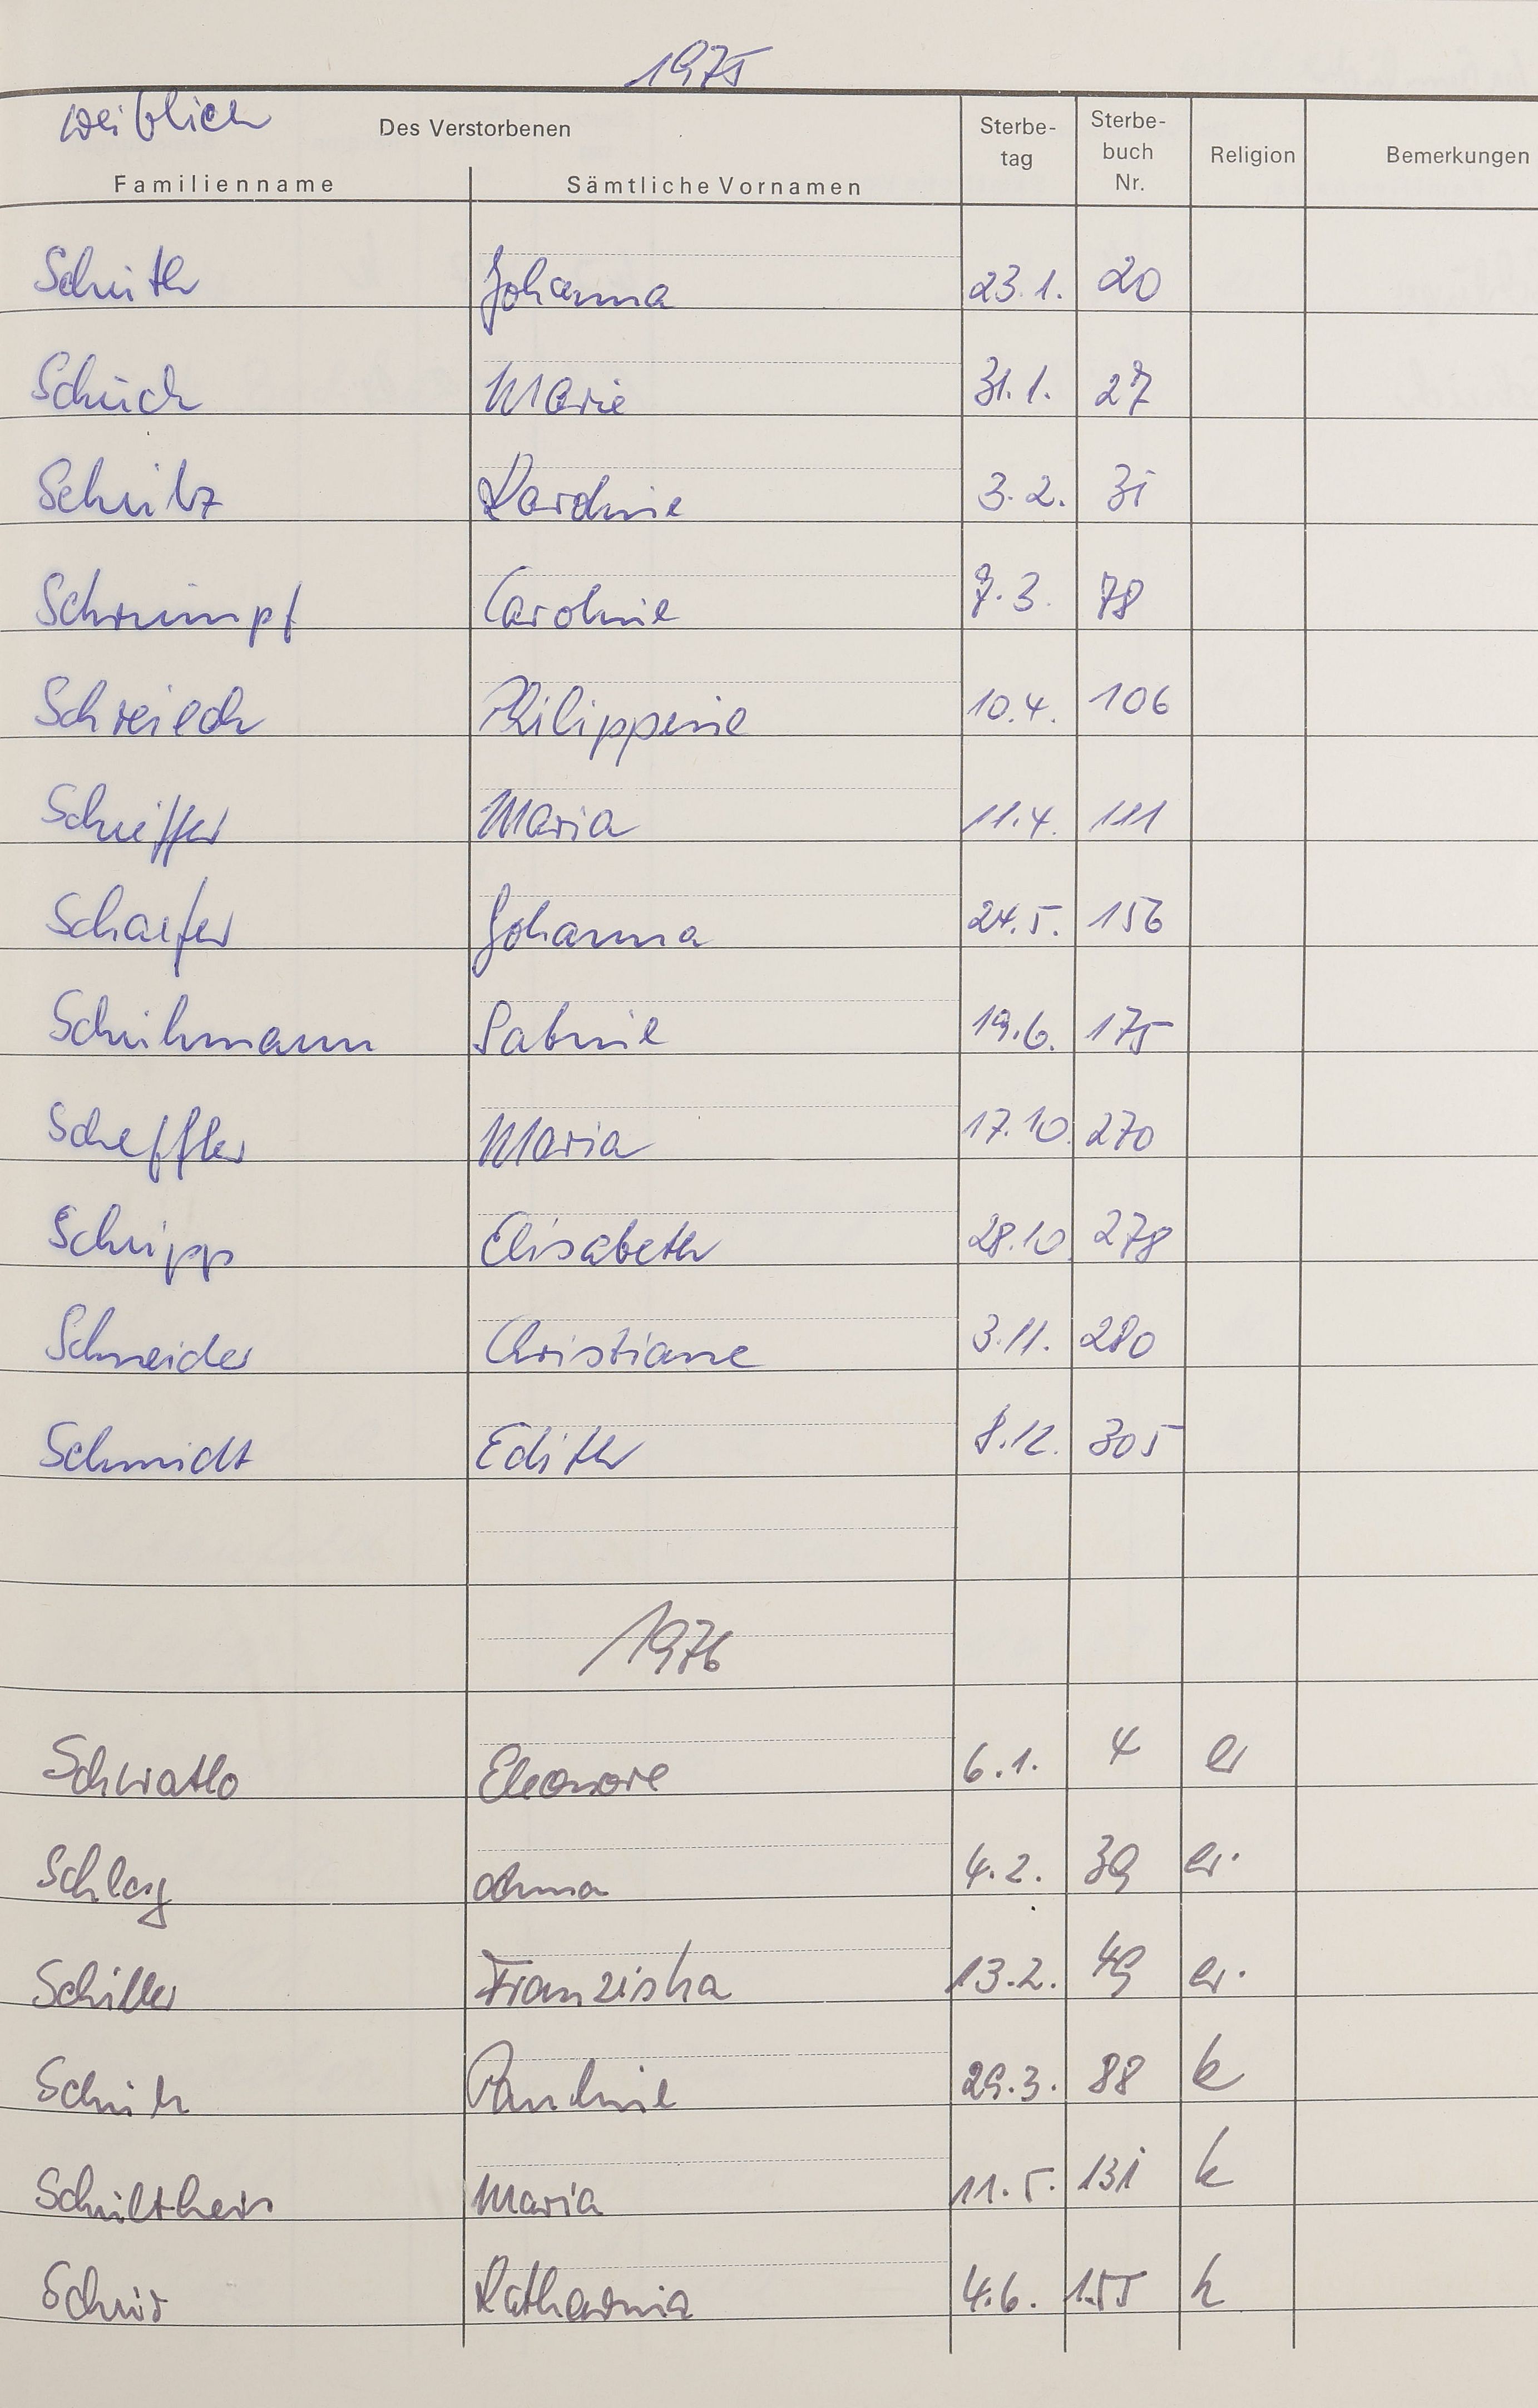 1975
weiblich
Des Verstorbenen
Familienname Sämtliche Vornamen Sterbe-tag Sterbe-buch Nr. Religion Bemerkungen
Johanna 23.1. 20
Schück Marie 31.1. 27
Schütz Karoline 3.2. 31
Schrumpf Caroline 7.3. 78
Schreieck Philippine 10.4. 106
Maria 11.4. 111
Schaefer Johanna 24.5. 156
Schuhmann Sabine 19.6. 175
Scheffler Maria 17.10. 270
Schupp Elisabeth 28.10. 278
Schneider Christiane 3.11. 280
Schmidt Edith 8.12. 305
1976
Eleonore 6.1. 4 ev
Schlag Anna 4.2. 39 ev.
Schiller Franziska 13.2. 49 ev.
Pauline 29.3. 88 k
Schultheis Maria 11.5. 131 k
Katharina 4.6. 155 k